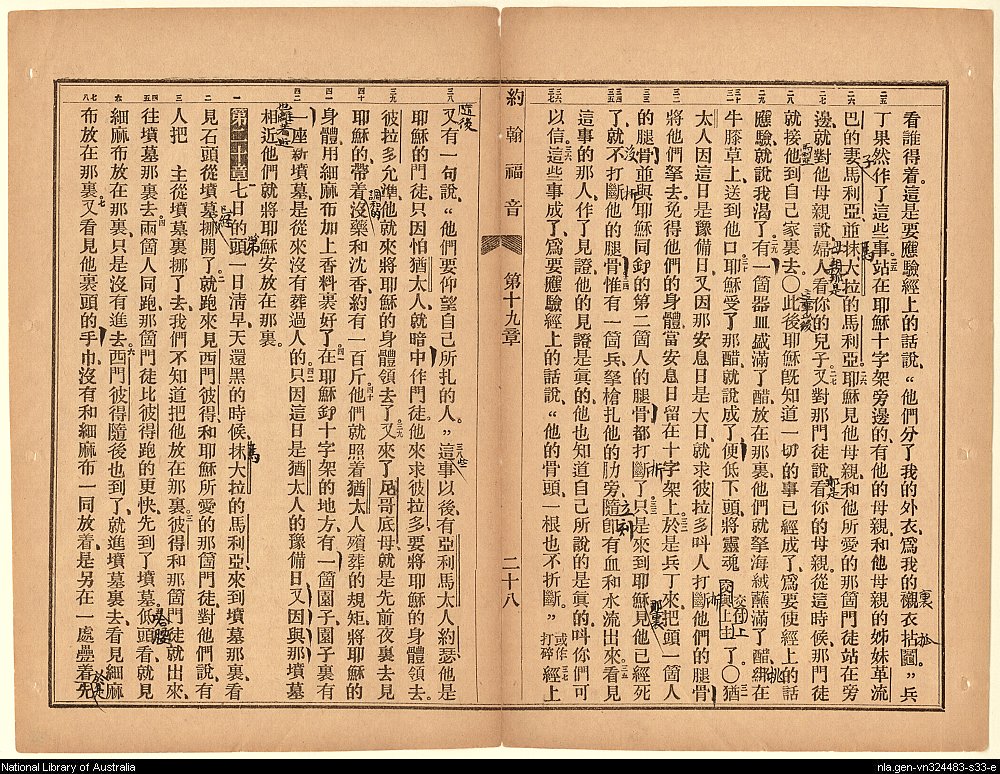 看誰得着這是要應驗經上的話說、“他們分了我的外衣、爲我的襯衣拈鬮”兵
丁果然作了這些事站在耶穌十字架旁邊的有他的母親和他母親的姊妹革流
巴的妻馬利亞並抹大拉的馬利亞耶穌見他母親和他所愛的那箇門徒站在旁
邊就對他母親說婦人看你的兒子又對那門徒說看你的母親從這時候那門徒
就接他到自己家裏去○此後耶穌旣知道一切的事已經成了爲要使經上的話
應驗就說我渴了有一箇器皿盛滿了醋放在那裏他們就拏海絨蘸滿了醋綁在
牛膝草上送到他口耶穌受了那醋就說成了便低下頭將靈魂 了○猶
太人因這日是豫備日又因那安息日是大日就求彼拉多呌人打斷他們的腿骨
將他們拏去免得他們的身體當安息日留在十字架上於是兵丁來把頭一箇人
的腿骨並與耶穌同釘的第二箇人的腿骨都打斷了只是來到耶穌見他已經死
了就不打斷他的腿骨惟有一箇兵拏槍扎他的肋旁隨卽有血和水流出來看見
這事的那人作了見證他的見證是眞的他也知道自己所說的是眞的呌你們可
以信這些事成了爲要應驗經上的話說“他的骨頭一根也不折斷”或作打碎經上
約翰福音 第十九章 二十八
又有一句說“他們要仰望自己所扎的人”這事以後有亞利馬太人約瑟他是
耶穌的門徒只因怕猶太人就暗中作門徒他來求彼拉多要將耶穌的身體領去
彼拉多允準他就來將耶穌的身體領去了又來了尼哥底母就是先前夜裏去見
耶穌的帶着沒藥和沈香約有一百斤他們就照着猶太人殯葬的規矩將耶穌的
身體用細麻布加上香料裹好了在耶穌釘十字架的地方有一箇園子園子裏有
一座新墳墓是從來沒有葬過人的只因這日是猶太人的豫備日又因與那墳墓
相近他們就將耶穌安放在那裏
第二十章七日的頭一日清早天還黑的時候抹大拉的馬利亞來到墳墓那裏看
見石頭從墳墓挪開了就跑來見西門彼得和耶穌所愛的那箇門徒對他們說有
人把 主從墳墓裏挪了去我們不知道把他放在那裏彼得和那箇門徒就出來
往墳墓那裏去兩箇人同跑那箇門徒比彼得跑的更快先到了墳墓低頭看就見
細麻布放在那裏只是沒有進去西門彼得隨後也到了就進墳墓裏去看見細麻
布放在那裏又看見他裹頭的手巾沒有和細麻布一同放着是另在一處疊着先
National Library of Australia
nla.gen-vn324483-s33-e